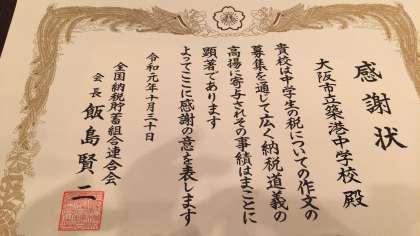 感謝状
大阪市立築港中学校 殿
貴校は中学生の税についての作文の
募集を通じて広く納税道義の
高揚に寄与されその事績はまことに
顕著であります
よってここに感謝の意を表します
令和元年十月三十日
全国納税貯蓄組合連合会
会長 飯島賢二